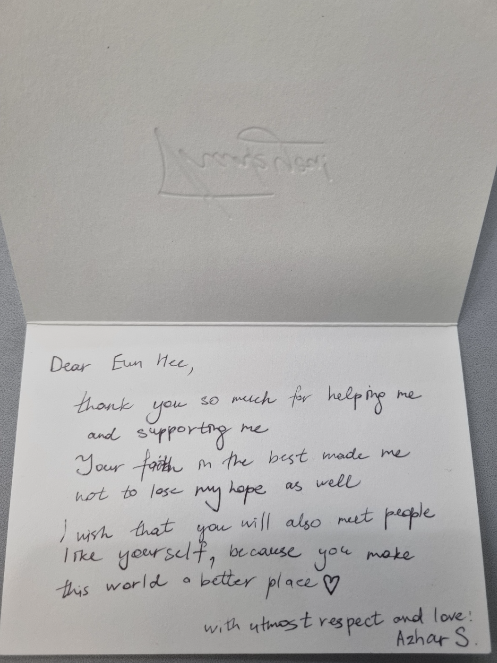 Dear Eun Hee,
thank you so much for helping me
and supporting me
Your faith in the best made me
not to lose my hope as well
I wish that you will also meet people
like yourself, because you make
this world a better place♡
with utmost respect and love:
Azhar S.